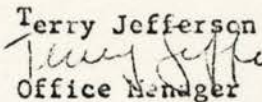 Terry Jefferson
Terry Jeffe
Office Manager